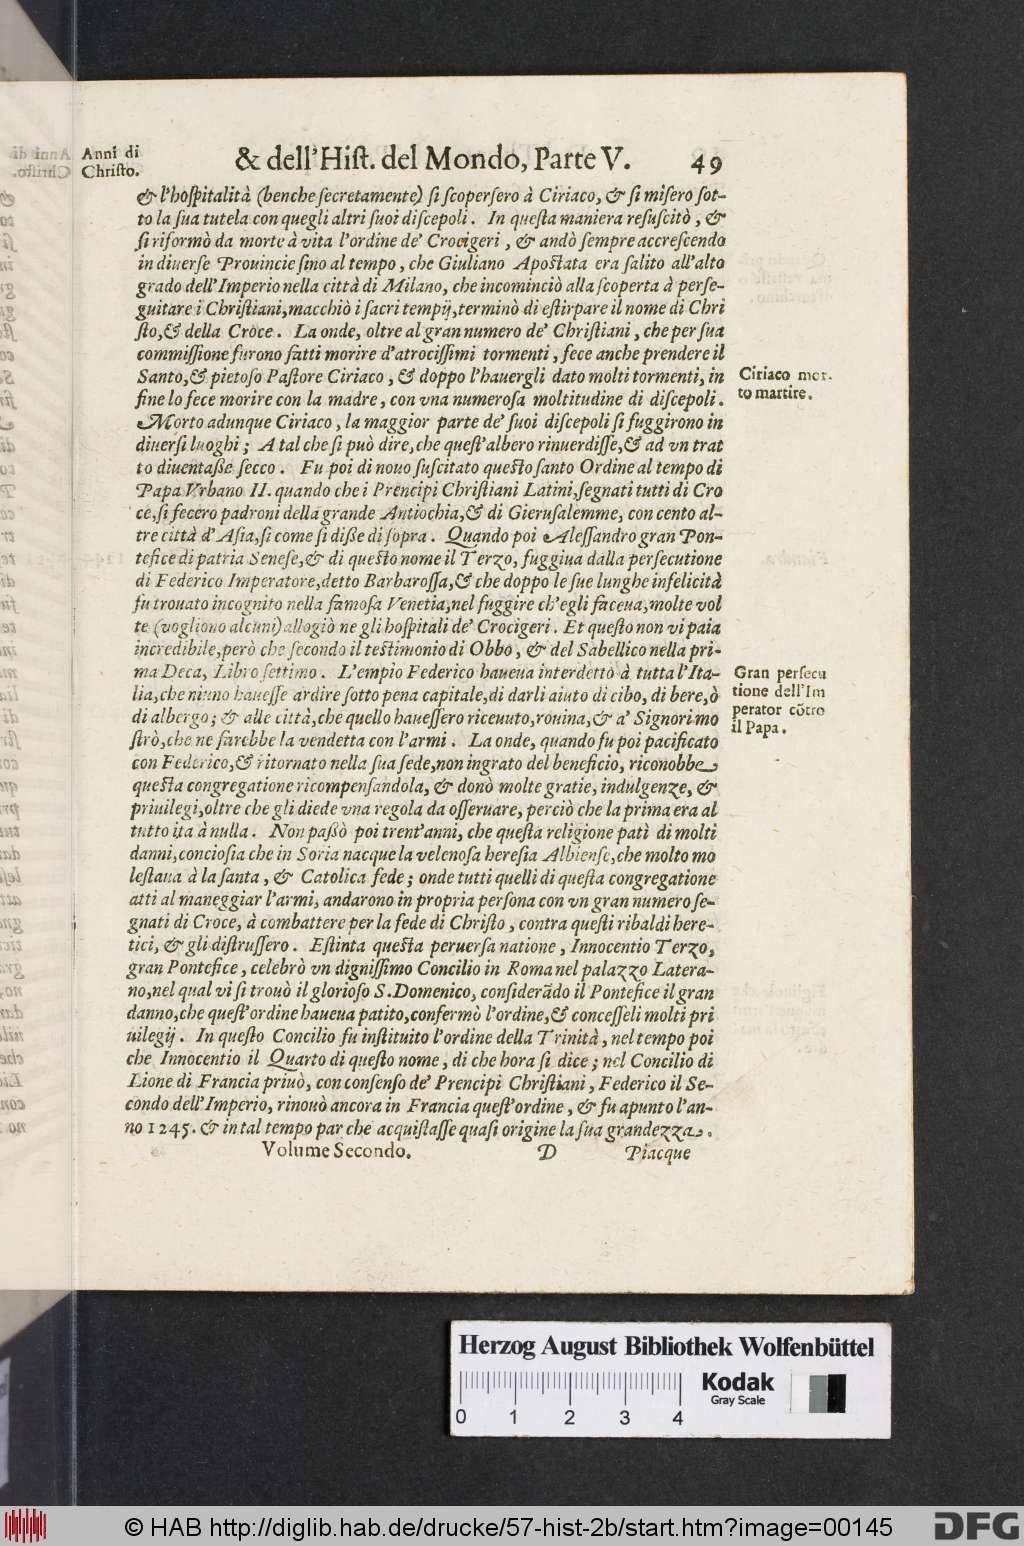 Anni di
Christo.
& dell'Hiſt. del Mondo, Parte V. 49
& l'hoſpitalità (benche ſecretamente) ſi ſcoperſero à Ciriaco, & ſi miſero ſot-
to la ſua tutela con quegli altri ſuoi diſcepoli. In queſta maniera reſuſcitò, &
ſi riformò da morte à vita l'ordine de' Crocigeri, & andò ſempre accreſcendo
in diuerſe Prouincie ſino al tempo, che Giuliano Apoſtata era ſalito all'alto
grado dell'Imperio nella città di Milano, che incominciò alla ſcoperta à perſe-
guitare i Chriſtiani, macchiò i ſacri tempij, terminò di eſtirpare il nome di Chri
ſto, & della Cròce. La onde, oltre al gran numero de' Chriſtiani, che per ſua
commiſſione furono fatti morire d'atrociſſimi tormenti, fece anche prendere il
Santo, & pietoſo Paſtore Ciriaco, & doppo l'hauergli dato molti tormenti, in
fine lo fece morire con la madre, con vna numeroſa moltitudine di diſcepoli.
Ciriaco mor-
to martire.
Morto adunque Ciriaco, la maggior parte de' ſuoi diſcepoli ſi fuggirono in
diuerſi luoghi; A tal che ſi può dire, che queſt'albero rinuerdiſſe, & ad vn trat
to diuentaſſe ſecco. Fu poi di nouo ſuſcitato queſto ſanto Ordine al tempo di
Papa Vrbano II. quando che i Prencipi Chriſtiani Latini, ſegnati tutti di Cro
ce, ſi fecero padroni della grande Antiochia, & di Gieruſalemme, con cento al-
tre città d'Aſia, ſi come ſi diſſe di ſopra. Quando poi Aleſſandro gran Pon-
tefice di patria Seneſe, & di queſto nome il Terzo, fuggiua dalla perſecutione
di Federico Imperatore, detto Barbaroſſa, & che doppo le ſue lunghe infelicità
fu trouato incognito nella famoſa Venetia, nel fuggire ch'egli faceua, molte vol
te (vogliono alcuni) allogiò ne gli hoſpitali de' Crocigeri. Et queſto non vi paia
incredibile, però che ſecondo il teſtimonio di Obbo, & del Sabellico nella pri-
ma Deca, Libro ſettimo. L'empio Federico haueua interdettò à tutta l'Ita-
lia, che niuno haueſſe ardire ſotto pena capitale, di darli aiuto di cibo, di bere, ò
di albergo; & alle città, che quello haueſſero riceuuto, rouina, & a' Signori mo
ſtrò, che ne farebbe la vendetta con l'armi. La onde, quando fu poi pacificato
Gran perſecu
tione dell'Im
perator cōtro
il Papa.
con Federico, & ritornato nella ſua ſede, non ingrato del beneficio, riconobbe
queſta congregatione ricompenſandola, & donò molte gratie, indulgenze, &
priuilegi, oltre che gli diede vna regola da oſſeruare, perciò che la prima era al
tutto ita à nulla. Non paſsò poi trent'anni, che queſta religione patì di molti
danni, concioſia che in Soria nacque la velenoſa hereſia Albienſe, che molto mo
leſtaua à la ſanta, & Catolica fede; onde tutti quelli di queſta congregatione
atti al maneggiar l'armi, andarono in propria perſona con vn gran numero ſe-
gnati di Croce, à combattere per la fede di Chriſto, contra queſti ribaldi here-
tici, & gli diſtruſſero. Eſtinta queſta peruerſa natione, Innocentio Terzo,
gran Pontefice, celebrò vn digniſſimo Concilio in Roma nel palazzo Latera-
no, nel qual vi ſi trouò il glorioſo S. Domenico, conſiderādo il Pontefice il gran
danno, che queſt'ordine haueua patito, confermò l'ordine, & conceſſeli molti pri
uilegij. In queſto Concilio fu inſtituito l'ordine della Trinità, nel tempo poi
che Innocentio il Quarto di queſto nome, di che hora ſi dice; nel Concilio di
Lione di Francia priuò, con conſenſo de' Prencipi Chriſtiani, Federico il Se-
condo dell'Imperio, rinouò ancora in Francia queſt'ordine, & fu apunto l'an-
no 1245. & in tal tempo par che acquiſtaſſe quaſi origine la ſua grandezza.
Volume Secondo. D Piacque
Herzog August Bibliothek Wolfenbüttel
Kodak
Gray Scale
0 1 2 3 4
© HAB http://diglib.hab.de/drucke/57-hist-2b/start.htm?image=00145
DFG